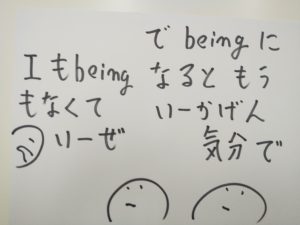 Iもbeing
もなくて
いーぜ
で being に
なると もう
いーかげん
気分で